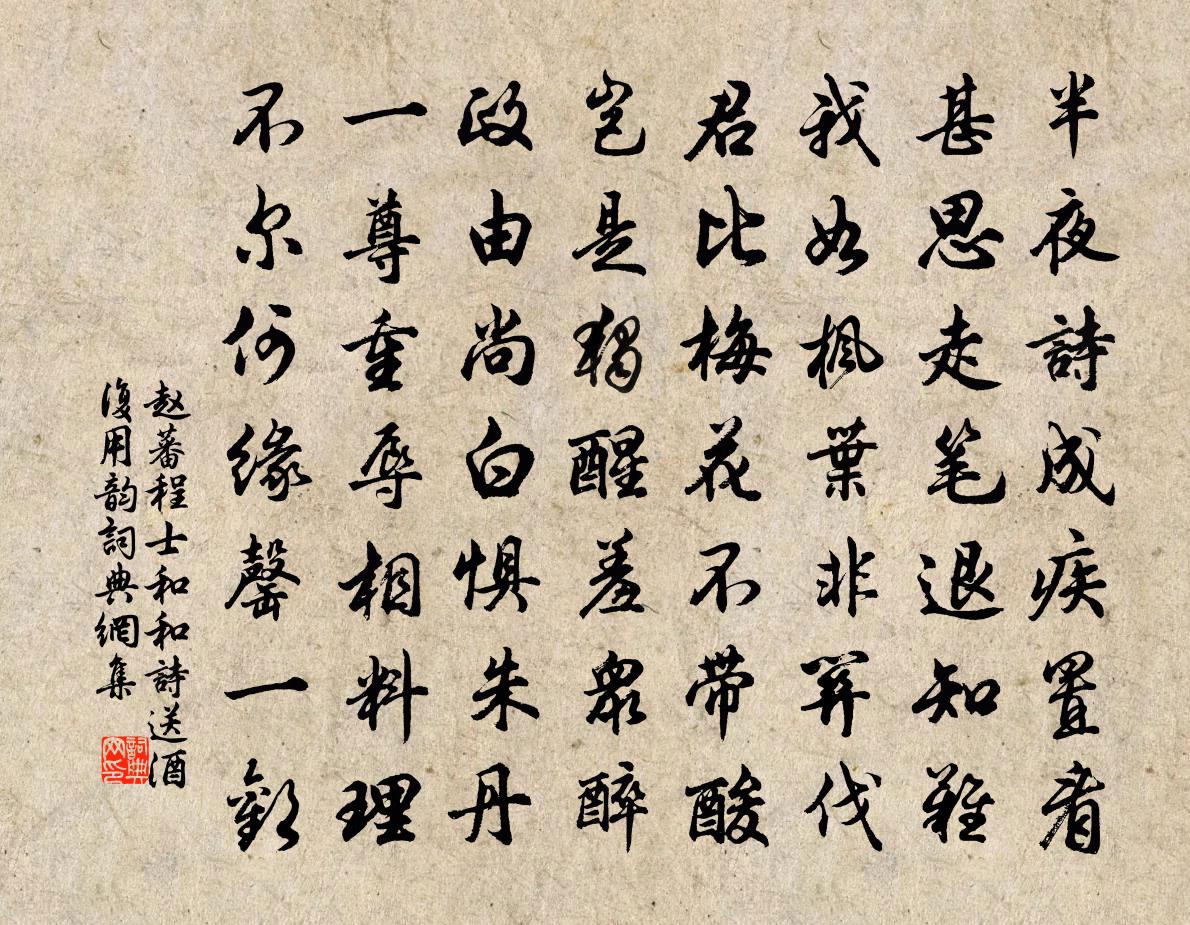 半夜詩成疾置看
甚思走笔退知難
我如枫葉非笄伐
君比梅花不带酸
岂是獨醒羞衆醉
政由尚白惧朱丹
一尊重辱相料理
不尔何缘罄一歡
赵蕃程士和和詩送酒
復用韵詞典網集
詞典